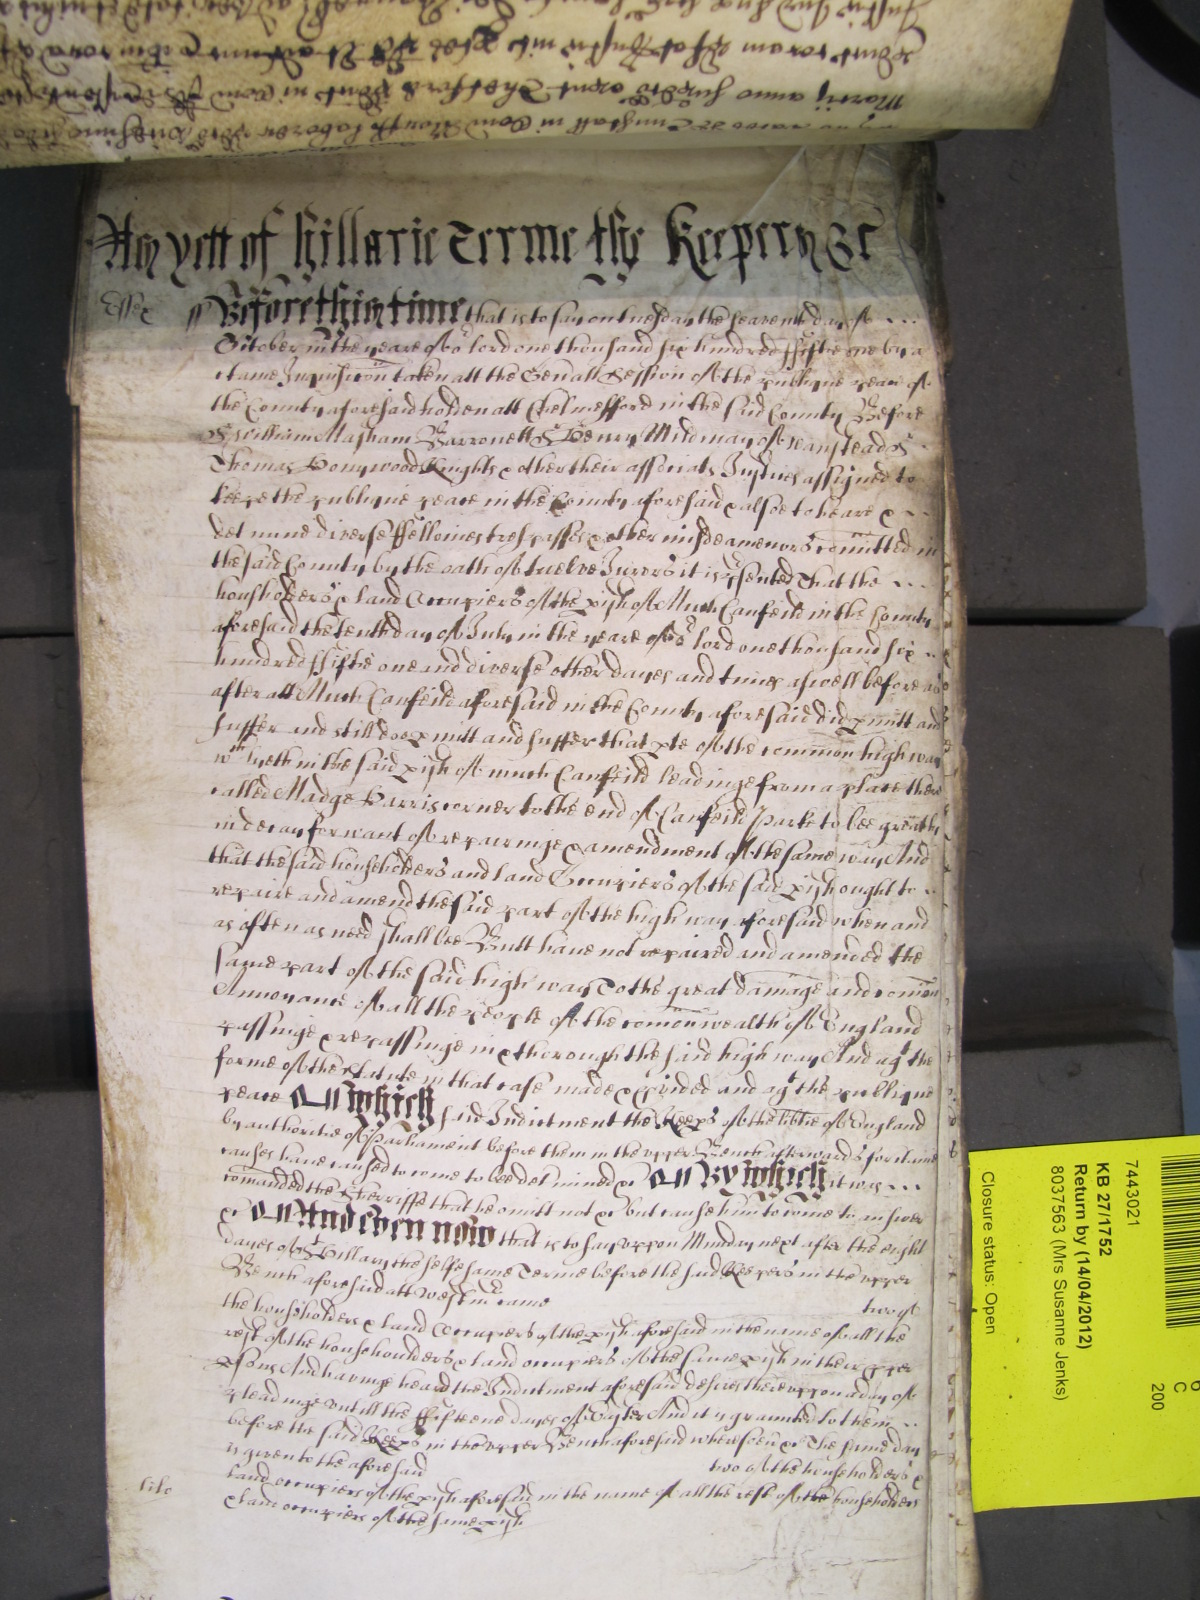 As yett of Hillarie Terme the Keepers &c
Essex ss Before this time that is to say on tuesday the seaventh day of
October in the yeare of or lord one thousand six hundred fiftie one by a
certaine Inquisicon taken att the Genall Session of the publique peace of
the County aforesaid holden att Chelmesford in the said County Before
Sr William Masham Barronett Sr Henry Mildmay of wanstead & Sr
Thomas Honywood Knights & other their associats Justices assigned to
keepe the publique peace in the County aforesaid & alsoe to heare &
determine diverse ffellonies trespasses & other misdeamenors comitted in
the said County by the oath of twelve Jurors it is psented That the
housholders & land Occupiers of the pish of Much Canfeild in the County
aforesaid the tenth day of July in the yeare of or lord one thousand six
hundred ffiftie one and diverse other dayes and times aswell before as
after att Much Canfeild aforesaid in the County aforesaid did pmitt and
suffer and still doe pmitt and suffer that pte of the common high way
wch lyeth in the said pish of much Canfeild leadinge from a place there
called Madge Harris corner to the end of Canfeild Parke to bee greatly
in decay for want of repairinge & amendment of the same way And
that the said householders and land Occupiers of the said pish ought to
repaire and amend the said part of the high way aforesaid when and
as often as need shall bee Butt have not repaired and amended the
same part of the said high way To the great damage and comon
Annoyance of all the people of the comonwealth of England
passinge & repassinge in & thorough the said high way And agt the
forme of the statute in that case made & pvided and agt the publique
peace Which said Indictment the Keeps of the libtie of England
by authoritie of Parliament before them in the upper Bench afterwards for certaine
causes have caused to come to bee determined & By which it was
comanded the Sherriffe that he omitt not & but cause him to come to answer
& And even now that is to say uppon Munday next after the eight
dayes of St Hillary the selfe same Terme before the said Keepers in the upper
Bench aforesaid att Westmr came two of
the housholders & land Occupiers of the pish aforesaid in the name of all the
rest of the householders & land occupiers of the same pish in their pper
psons And havinge heard the Indictment aforesaid desires thereuppon a day of
pleadinge untill the ffifteene dayes of Easter And it is graunted to them
before the said Keeps in the upper Bench aforesaid wheresoev & The same day
is given to the aforesaid two of the householders &
land occupiers of the pish aforesaid in the name of all the rest of the householders
& land occupiers of the same pish
7443021
KB 27/1752
Return by (14/04/2012)
8037563 (Mrs Susanne Jenks)
Closure status: Open
C
200